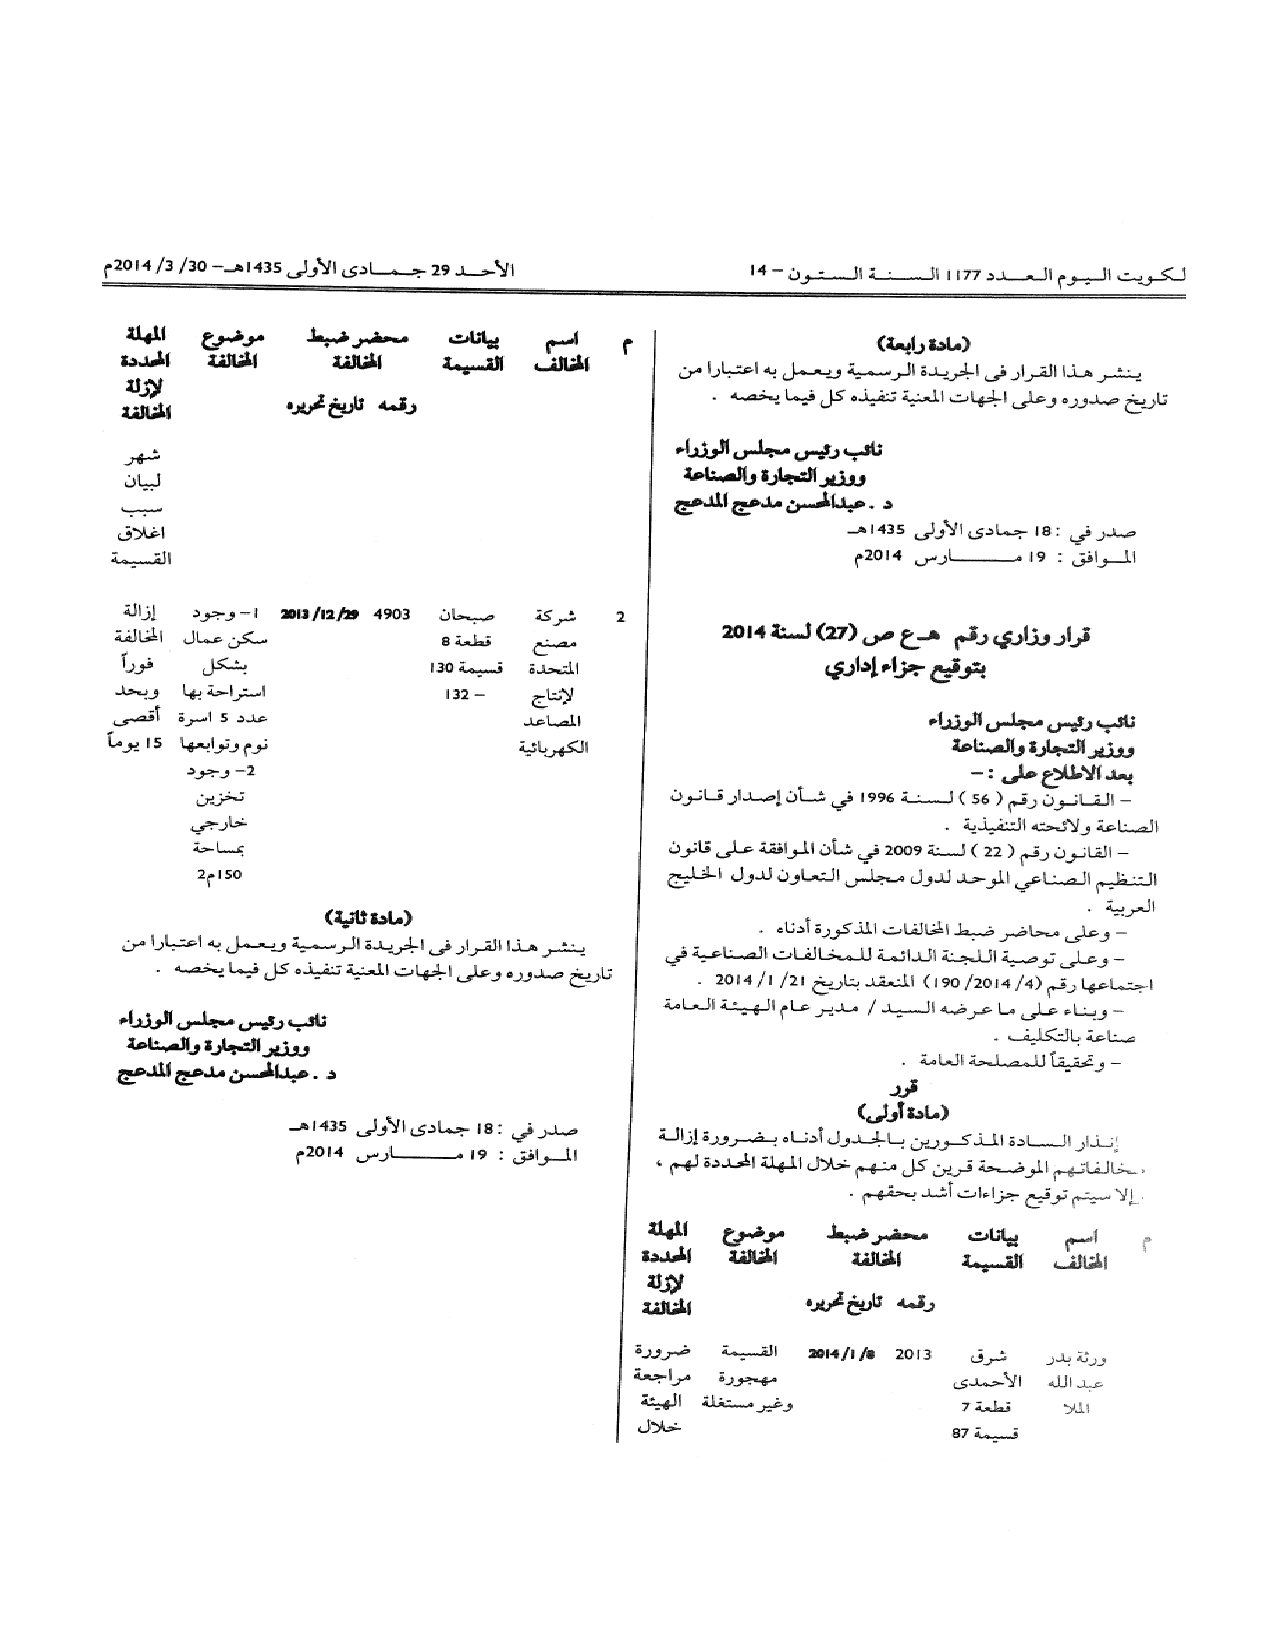 لكويت اليوم العدد 1177 السنة الستون - 14
الأحد 29 جمادى الأولى 1435هـ - 30 /3 /2014م
(مادة رابعة)
ينشر هذا القرار في الجريدة الرسمية ويعمل به اعتبارا من
تاريخ صدوره وعلى الجهات المعنية تنفيذه كل فيما يخصه .
نائب رئيس مجلس الوزراء
ووزير التجارة والصناعة
د . عبدالمحسن مدعج المدعج
صدر في : 18 جمادى الأولى 1435هـ
الموافق : 19 مارس 2014م
قرار وزاري رقم هـ ع ص (27) لسنة 2014
بتوقيع جزاء إداري
نائب رئيس مجلس الوزراء
ووزير التجارة والصناعة
بعد الاطلاع على : -
- القانون رقم ( 56 ) لسنة 1996 في شأن إصدار قانون
الصناعة ولائحته التنفيذية .
- القانون رقم ( 22 ) لسنة 2009 في شأن الموافقة على قانون
التنظيم الصناعي الموحد لدول مجلس التعاون لدول الخليج
العربية .
- وعلى محاضر ضبط المخالفات المذكورة أدناه .
- وعلى توصية اللجنة الدائمة للمخالفات الصناعية في
اجتماعها رقم (4/ 2014/ 190) المنعقد بتاريخ 21/ 1/ 2014 .
- وبناء على ما عرضه السيد / مدير عام الهيئة العامة
صناعة بالتكليف .
- وتحقيقاً للمصلحة العامة .
قرر
(مادة أولى)
إنذار السادة المذكورين بالجدول أدناه بضرورة إزالة
مخالفاتهم الموضحة قرين كل منهم خلال المهلة المحددة لهم ،
إلا سيتم توقيع جزاءات أشد بحقهم .
م اسم بيانات محضر ضبط موضوع المهلة
المخالف القسيمة المخالفة المخالفة المحددة
لإزلة
رقمه تاريخ تحريره المخالفة
ورثة بدر شرق 2013 2014/1/8 القسيمة ضرورة
عبد الله الأحمدى مهجورة مراجعة
الملا قطعة 7 وغير مستغلة الهيئة
قسيمة 87 خلال
م اسم بيانات محضر ضبط موضوع المهلة
المخالف القسيمة المخالفة المخالفة المحددة
لإزلة
رقمه تاريخ تحريره المخالفة
شهر
لبيان
سبب
اغلاق
القسيمة
2 شركة صبحان 4903 2013/12/29 1- وجود إزالة
مصنع قطعة 8 سكن عمال المخالفة
المتحدة قسيمة 130 بشكل فوراً
لإنتاج - 132 استراحة بها وبحد
المصاعد عدد 5 اسرة أقصى
الكهربائية نوم وتوابعها 15 يوماً
2- وجود
تخزين
خارجي
بمساحة
150م2
(مادة ثانية)
ينشر هذا القرار في الجريدة الرسمية ويعمل به اعتبارا من
تاريخ صدوره وعلى الجهات المعنية تنفيذه كل فيما يخصه .
نائب رئيس مجلس الوزراء
ووزير التجارة والصناعة
د . عبدالمحسن مدعج المدعج
صدر في : 18 جمادى الأولى 1435هـ
الموافق : 19 مارس 2014م